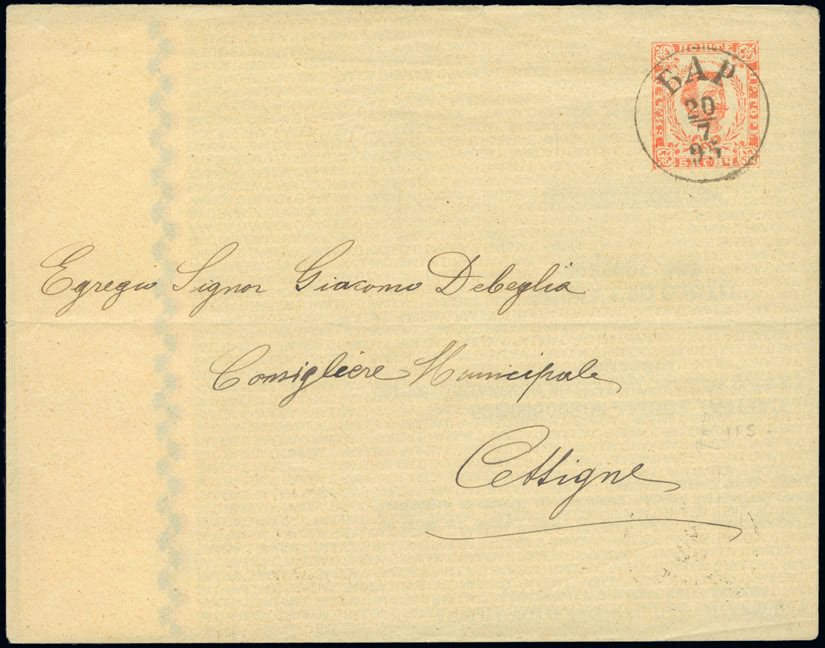 БАР
20
7
95
Egregio Signor Giacomo Debeglia
Consigliere Municipale
Cettigne